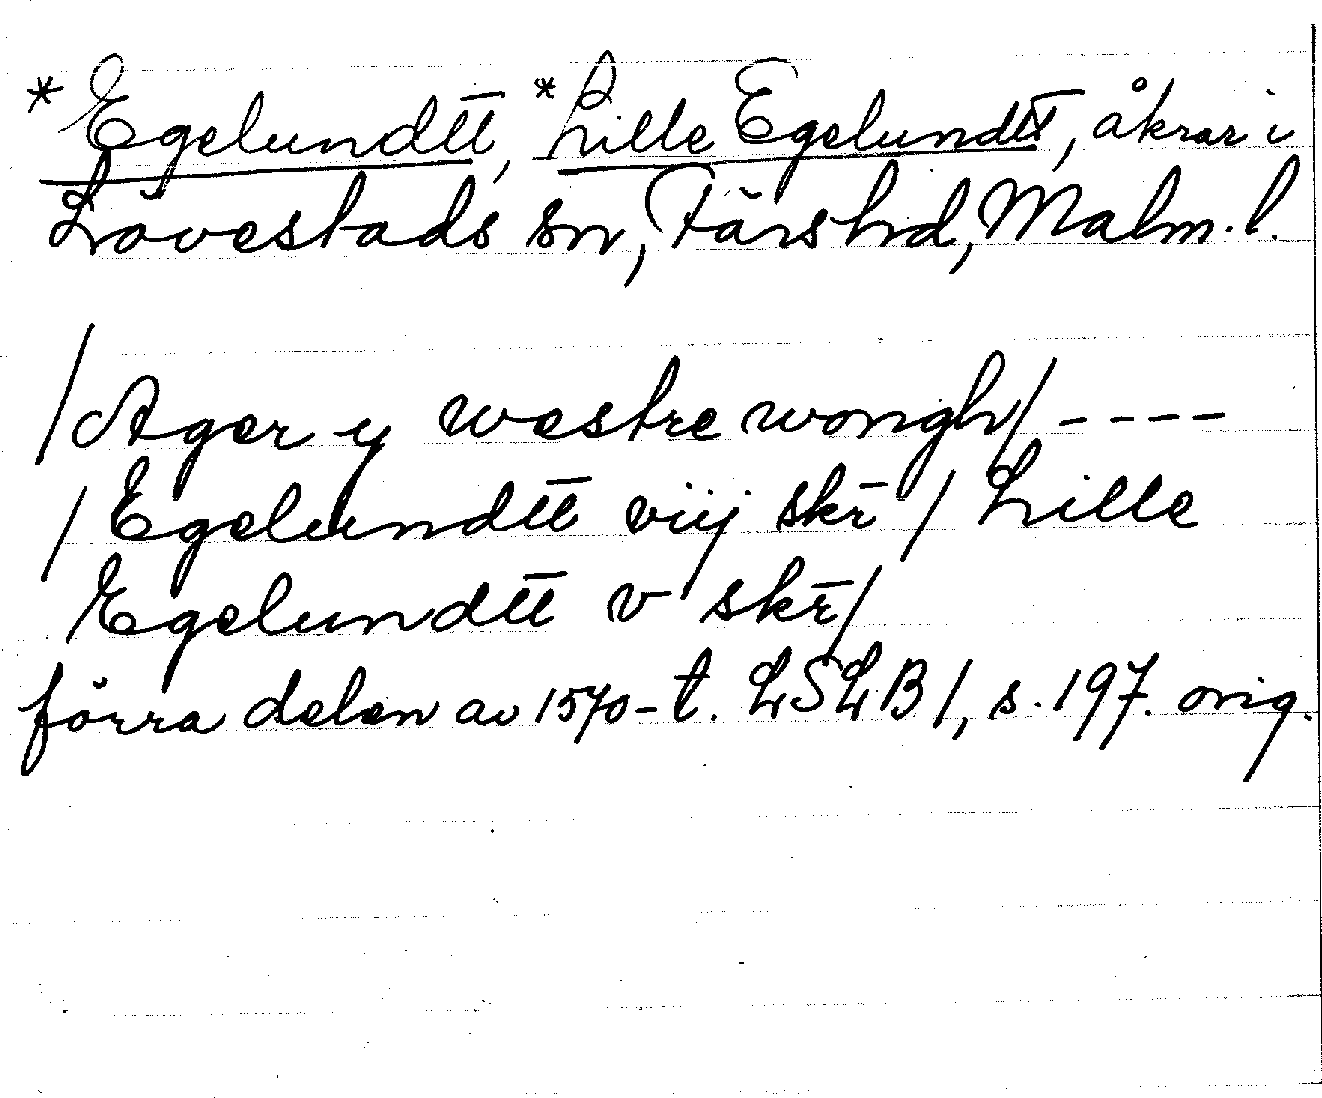 *Egelundtt̅, *Lille Egelundtt̅, åkrar i
Lövestads sn, Färs hd, Malm. l.
/Ager y westre wongh/ - - - -
/Egelundtt̅ viij skr̅ / Lille
Egelundtt̅ v skr̅/
förra delen av 1570-t. LSLB1, s. 197. orig.